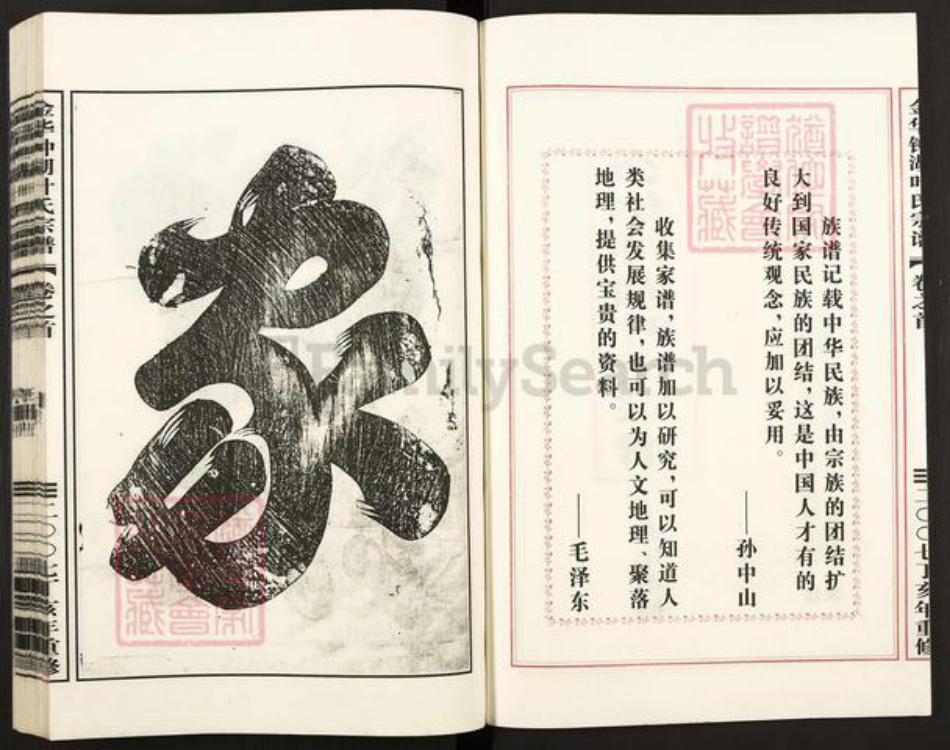 族谱记载中华民族，由宗族的团结扩
大到国家民族的团结，这是中国人才有的
良好传统观念，应加以妥用。
——孙中山
收集家谱，族谱加以研究，可以知道人
类社会发展规律，也可以为人文地理、聚落
地理，提供宝贵的资料。
——毛泽东
卷之首
二〇〇七丁亥年重修
叶氏宗谱
卷之首
二〇〇七丁亥年重修
FamilySearch